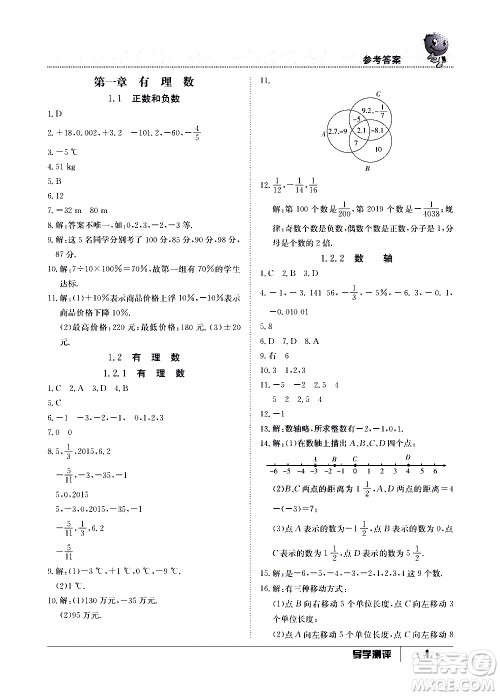 参考答案
第一章 有理数
1.1 正数和负数
1. D
2. +18,0.002,+3.2 -101.2,-4/5
3. -5 ℃
4. 51 kg
5. B
6. 12
7. -32 m 80 m
8. 解:答案不唯一,如:0,2,-2,3,-3.
9. 解:这5名同学分别考了100分,85分,90分,98分,
87分.
10. 解:7÷10×100%=70%,故第一组有70%的学生
达标.
11. 解:(1)+10%表示商品价格上浮10%,-10%表示
商品价格下降10%.
(2)最高价格:220元;最低价格:180元.(3)±20
元.
1.2 有理数
1.2.1 有理数
1. C 2. A 3. D 4. A
5. C
6. -1 -1,-3,-5 0,1,-1,-3,-5
7. 0 0
8. 5,1/3,2015,6.2
-5/11,-3,-0.15
5,0,2015
5,-3,0,2015
-5/11,1/3,6.2
9. 解:(1)-3 ℃,+1 ℃,0 ℃,-5 ℃.
(2)1 ℃.
10. 解:(1)130万元,-30万元.
(2)100万元.
11.
A B C
2.7,-9
9.2,-1/7
-5
2.1
-8.1
7
10
12. 1/12,-1/14,1/16
解:第100个数是1/200,第2019个数是-1/4038;规
律:奇数个数为负数,偶数个数为正数,分子为1,分
母为个数的2倍.
1.2.2 数轴
1. C 2. A 3. D
4. -1,-3.141 56,-1/3,-5%,-6.3,-32,0
5. ±8
6. D 7. D 8. C
9. 右 6
10. 3 1,2,3
11. -5 2 5 4
5 2 2 5
12. -1
13. 解:数轴略,所求整数有-2,-1,0,1,2,3.
14. 解:(1)在数轴上描出A,B,C,D四个点:
B C A D
-6 -5 -4 -3 -2 -1 0 1 2 3 4 5 6
(2)B,C两点的距离=-1 1/2-(-3)=1 1/2,A,D两点的距离=4
-(-3)=7;
(3)点A表示的数为-1 1/2,点B表示的数为1/2,
点C表示的数为3,点D表示的数为-1.
15. 解:-3,-2,-1,0,1,2.
16. 解:有三种移动方式:
(1)点B向右移动5个单位长度,点C向左移动3
个单位长度.
(2)点A向左移动5个单位长度,点C向左移动8
导学测评
1